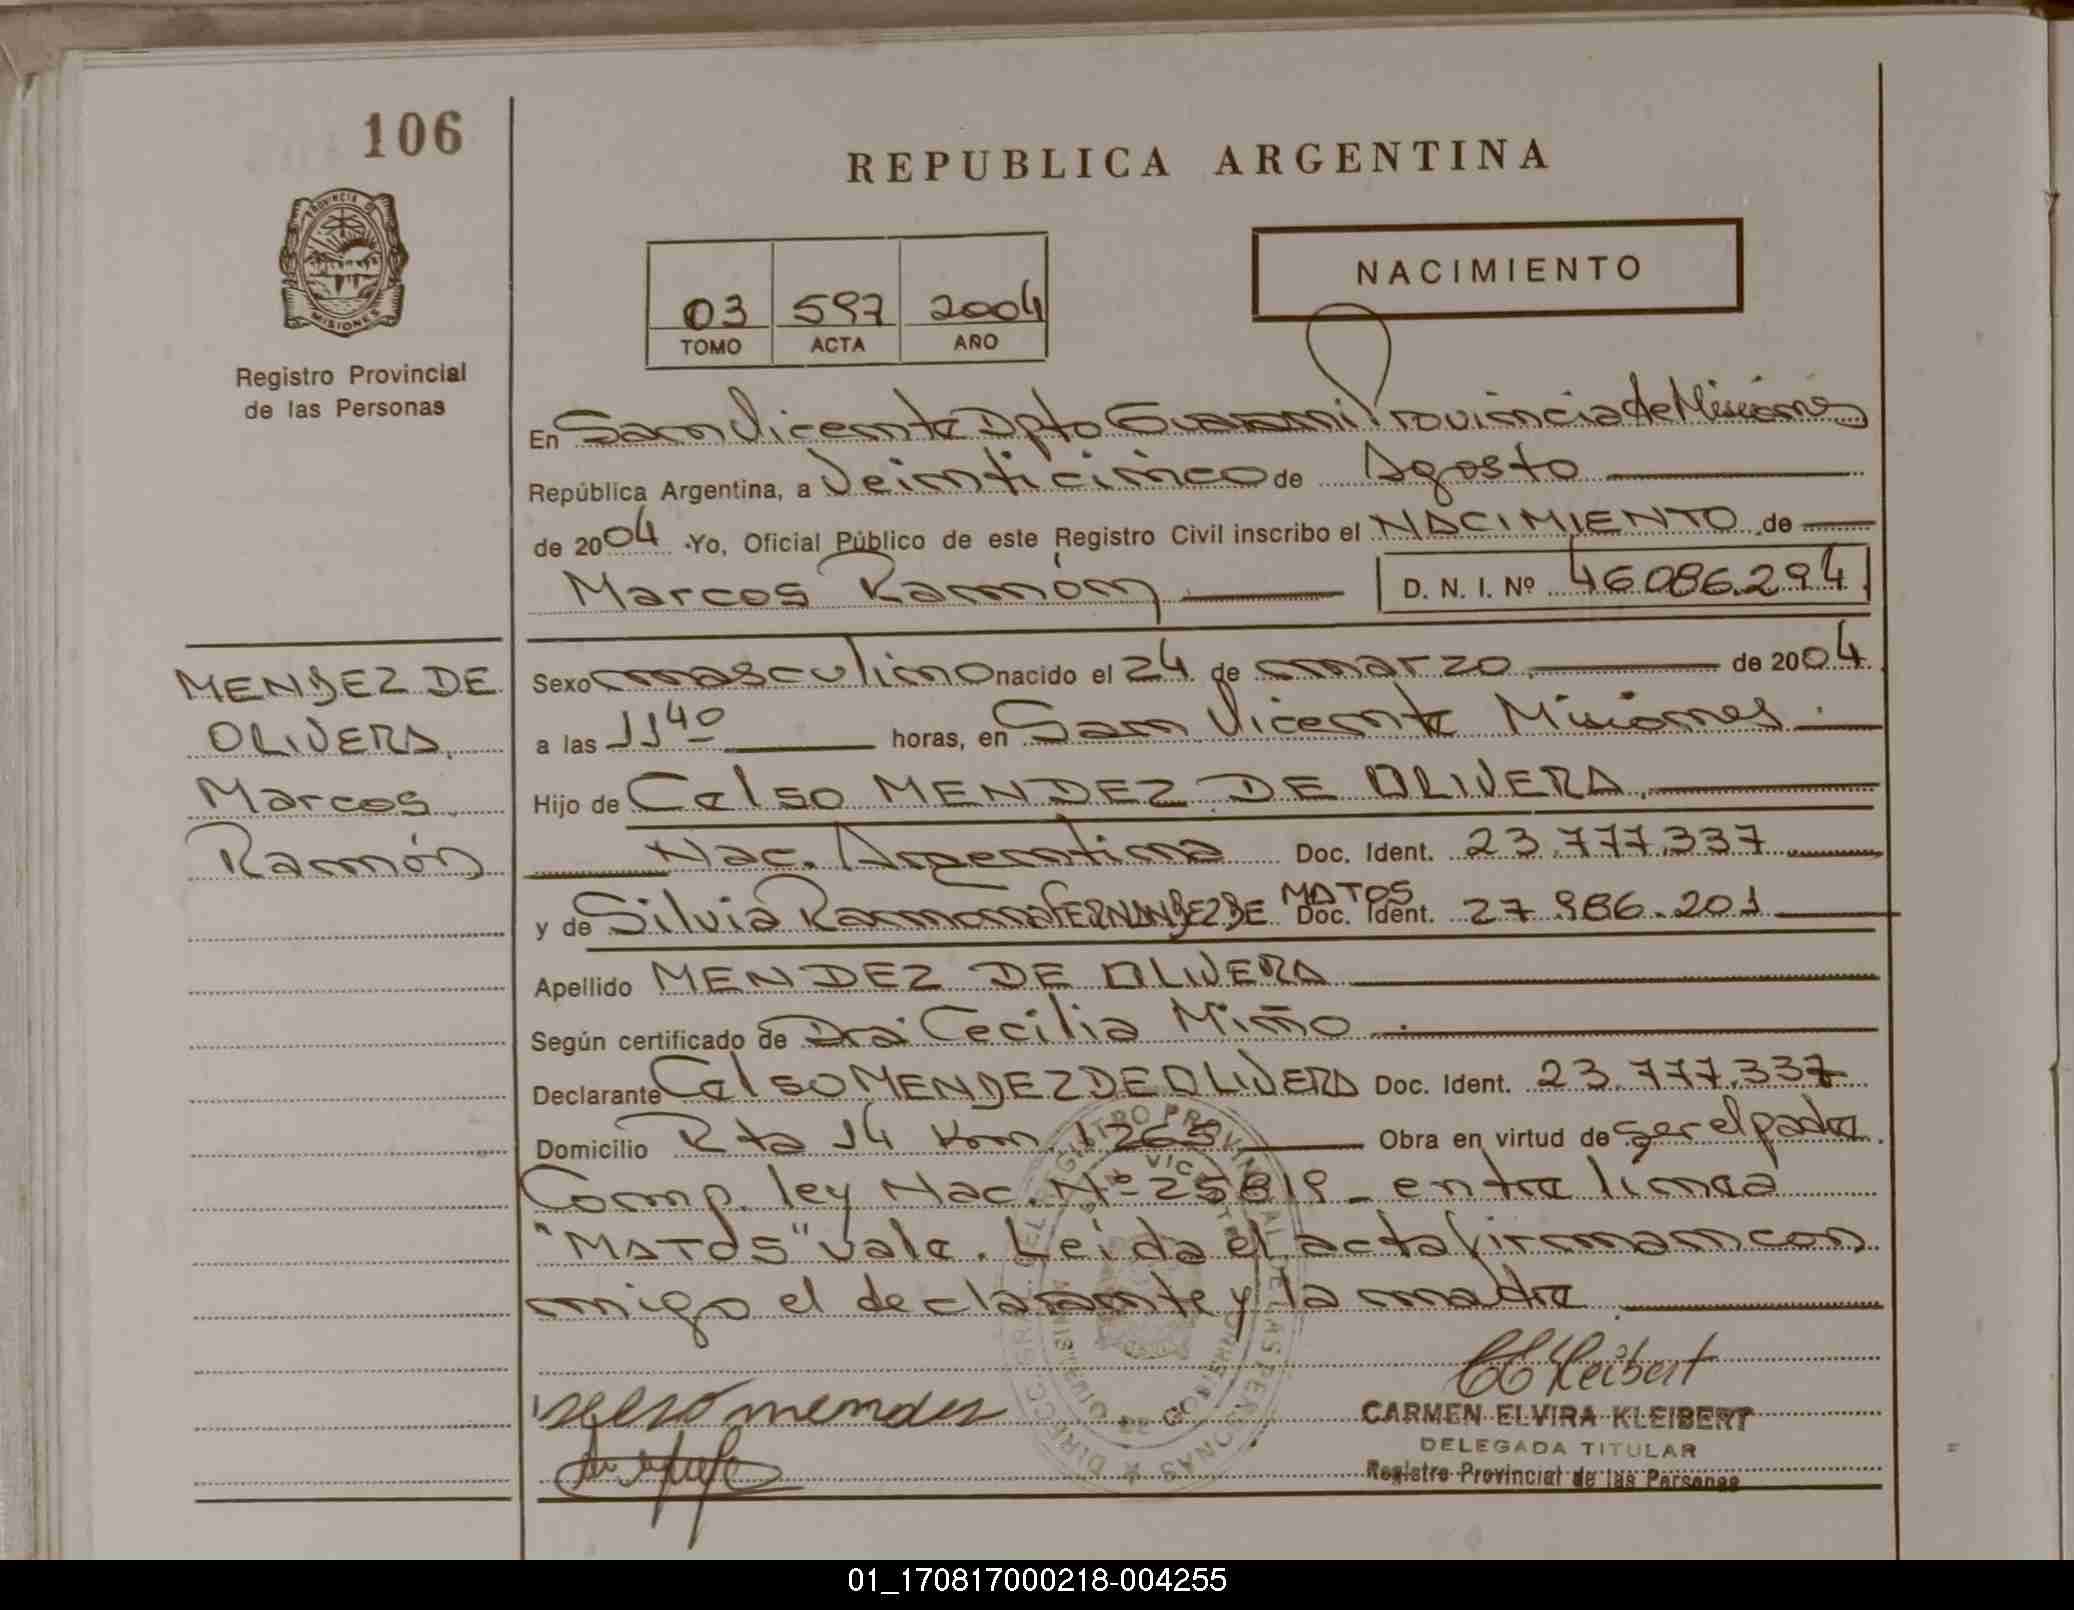 106
REPUBLICA ARGENTINA
PROVINCIA DE
MISIONES
Registro Provincial
de las Personas
NACIMIENTO
03 597 2004
TOMO ACTA AÑO
En San Vicente Dpto Guarani Provincia de Misiones
República Argentina, a Veinticinco de Agosto
de 2004 Yo, Oficial Público de este Registro Civil inscribo el NACIMIENTO de
Marcos Ramón D. N. I. Nº 46.086.294
MENDEZ DE
OLIVERA,
Marcos
Ramón
Sexo masculino nacido el 24 de marzo de 2004
a las 11 40 horas, en San Vicente Misiones
Hijo de Celso MENDEZ DE OLIVERA
Nac. Argentina Doc. Ident. 23.777.337
y de Silvia Ramona FERNANDEZ DE MATOS Doc. Ident. 27.986.201
Apellido MENDEZ DE OLIVERA
Según certificado de Dra Cecilia Miño
Declarante Celso MENDEZ DE OLIVERA Doc. Ident. 23.777.337
Domicilio Rta 14 Km 1263 Obra en virtud de ser el padre
Comp. ley Nac. Nº 25819 - entre linea
"MATOS" vale. Leida el acta firman con
migo el declarante y la madre
CEKleibert
selso mendes
CARMEN ELVIRA KLEIBERT
DELEGADA TITULAR
Registro Provincial de las Personas
01_170817000218-004255